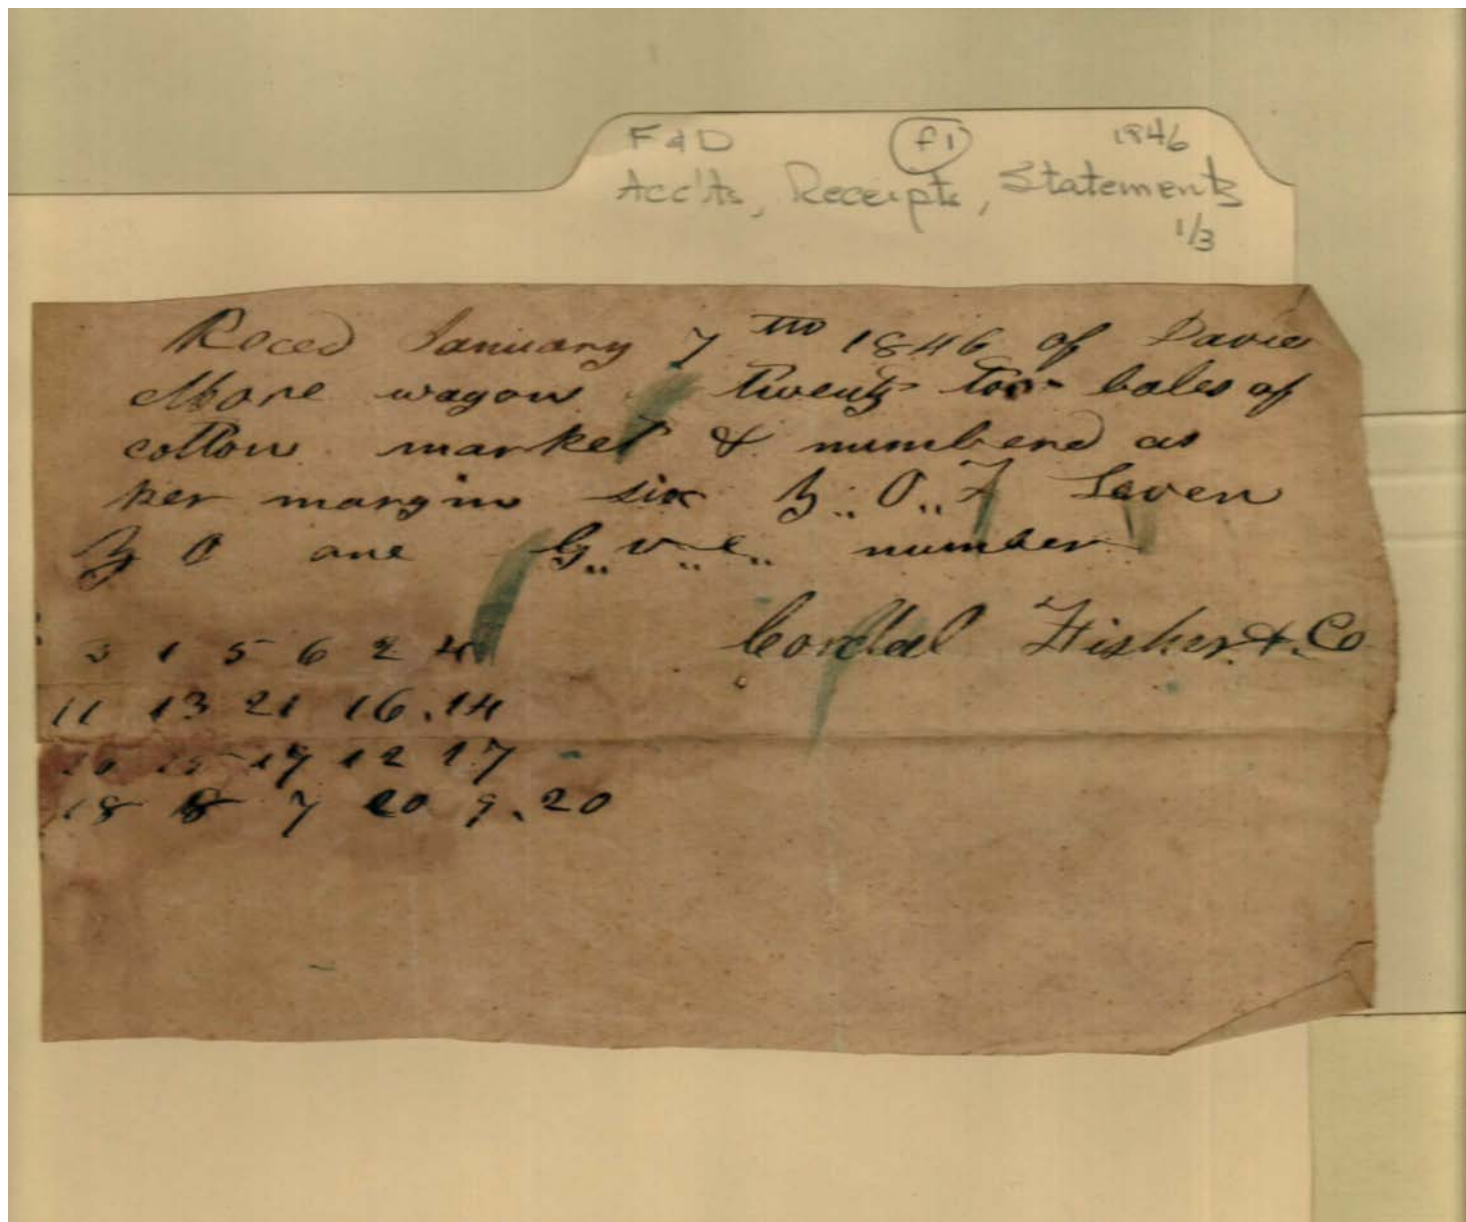 F & D f1 1846
Acc'ts, Receipts, Statements
1/3
Reced January 7 th 1846 of Davie
More wagon twenty too bales of
cotton market & numberd as
per margin six Z.. O.. F Seven
Z O one G.. v.. c.. number
Cordal Fisher & Co
3 1 5 6 2 4
11 13 21 16. 14
19 12 17
18 8 7 20 9. 20